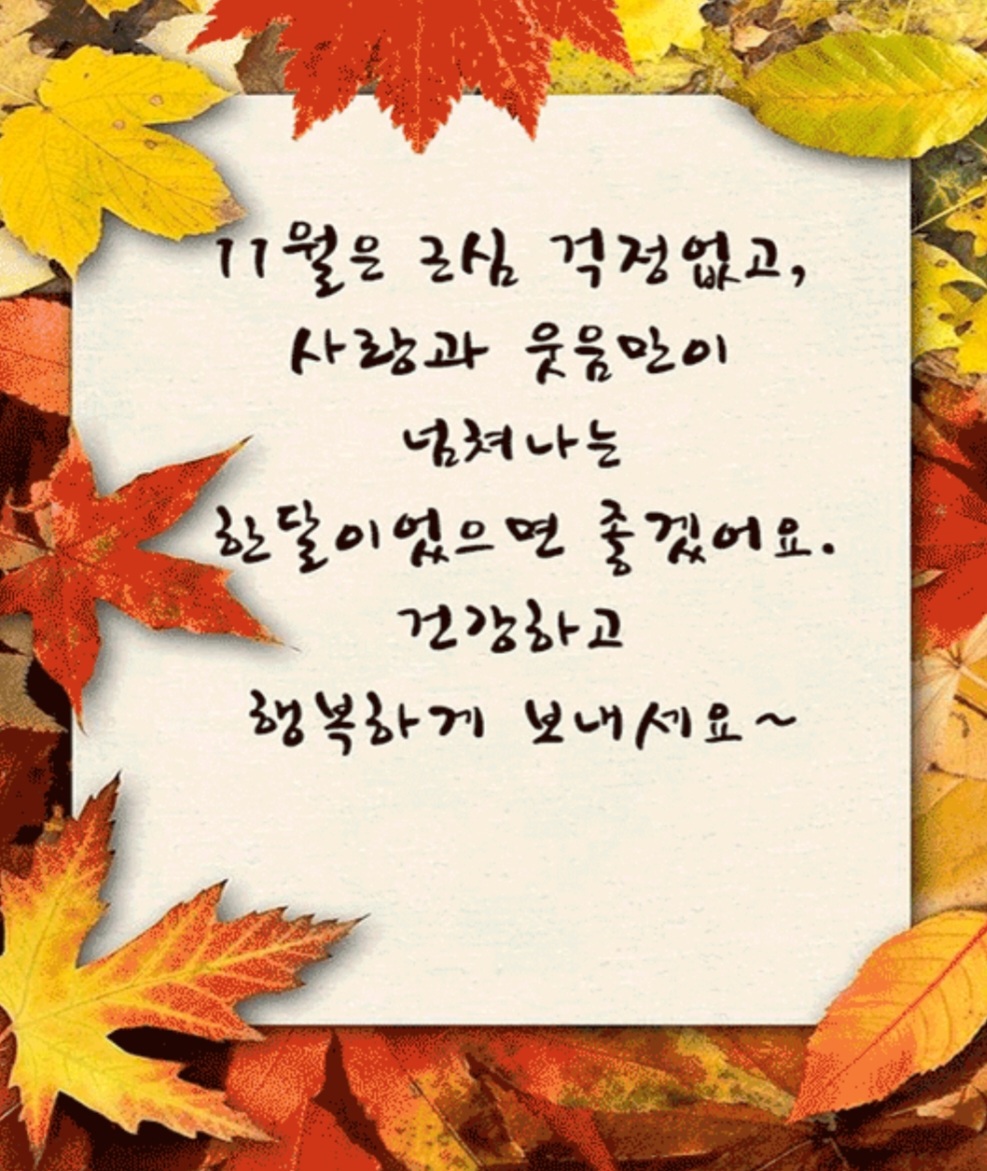 11월은 근심 걱정없고,
사랑과 웃음만이
넘쳐나는
한달이었으면 좋겠어요.
건강하고
행복하게 보내세요~